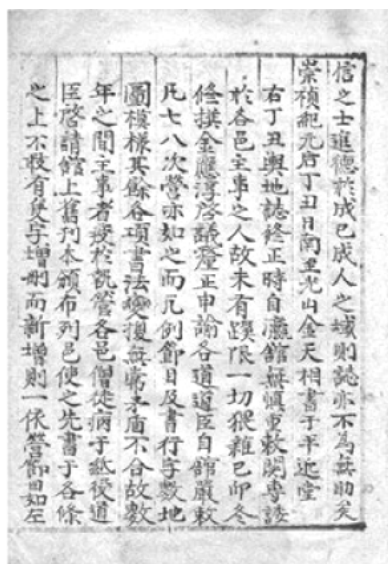 信之士進德於成己成人之域則誌亦不為無助矣
崇禎紀元后丁丑日南至光山金天相書于平近堂
右丁丑輿地誌修正時自瀛館無慎重敕関專諉
於各邑主事之人故未有蹊限一切猥雜已卯冬
修撰金應淳啓議釐正申諭各道道臣自館嚴敕
凡七八次營亦如之而凡例節目及書行字數地
圖模樣其餘各項書法變復無常矛盾不合故數
年之間主事者疲於祇營各邑僧徒病于紙役道
臣啓請館上舊刊本頒布列邑使之先書于各條
之上不敢有隻字增刪而新增則一依營節目如左